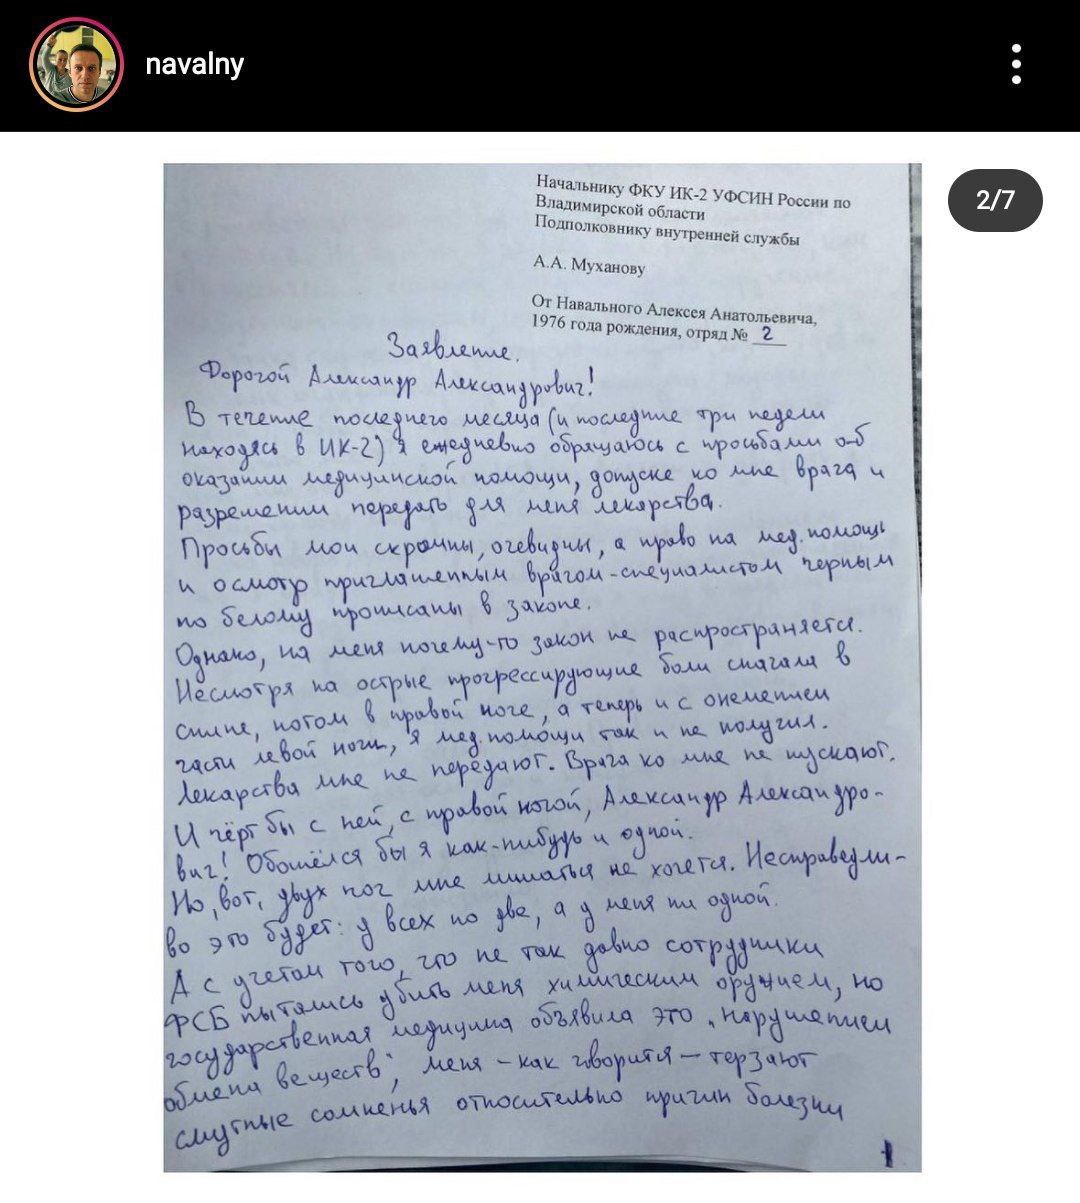 navalny
2/7
Начальнику ФКУ ИК-2 УФСИН России по
Владимирской области
Подполковнику внутренней службы
А.А. Муханову
От Навального Алексея Анатольевича,
1976 года рождения, отряд № 2
Заявление.
Дорогой Александр Александрович!
В течение последнего месяца (и последние три недели
находясь в ИК-2) я ежедневно обращаюсь с просьбами об
оказании медицинской помощи, допуске ко мне врача и
разрешении передать для меня лекарства.
Просьбы мои скромны, очевидны, а право на мед. помощь
и осмотр приглашенным врагом-специалистом черным
по белому прописаны в законе.
Однако, на меня почему-то закон не распространяется.
Несмотря на острые прогрессирующие боли сначала в
спине, потом в правой ноге, а теперь и с онемением
части левой ноги, я мед. помощи так и не получил.
Лекарства мне не передают. Врача ко мне не пускают.
И чёрт бы с ней, с правой ногой, Александр Александро-
вич! Обошёлся бы я как-нибудь и одной.
Но, вот, двух ног мне лишаться не хочется. Несправедли-
во это будет: у всех по две, а у меня ни одной.
А с учетом того, что не так давно сотрудники
ФСБ пытались убить меня химическим оружием, но
государственная медицина объявила это "нарушением
обмена веществ", меня - как говорится - терзают
смутные сомненья относительно причин болезни
1